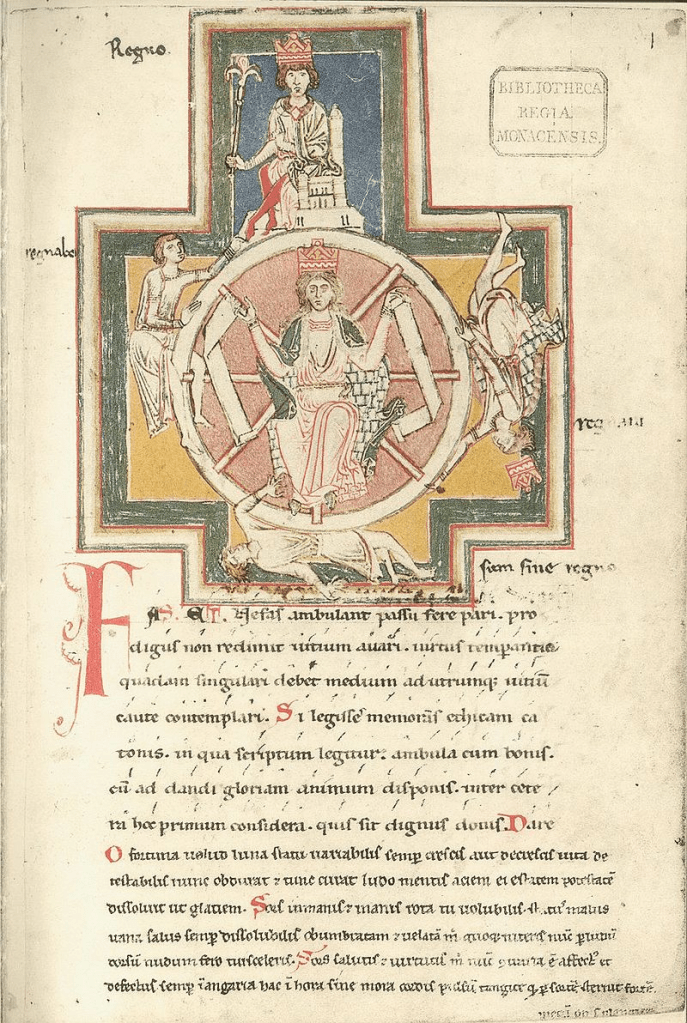 Regno.
1
BIBLIOTHECA
REGIA
MONACENSIS.
regnabo
regnaui
sum sine regno
FAS. ET. Nefas ambulant passu fere pari. pro
digus non redimit uitium auari. uirtus temperantie
quadam singulari debet medium ad utrumq; uitiū
caute contemplari. Si legisse memoras ethicam ca
tonis. in qua scriptum legitur. ambula cum bonis.
cū ad dandi gloriam animum disponis. inter cete
ra hoc primum considera. quis sit dignus donis. Dare
O fortuna uelud luna statu uariabilis semp crescis aut decrescis uita de
testabilis nunc obdurat & tunc curat ludo mentis aciem egestatem potestatē
dissoluit ut glatiem. Sors inmanis & inanis rota tu uolubilis. status malus
uana salus semp dissolubilis obumbratam & uelatā m quoq; niteris nūc p ludum
dorsum nudum fero tui sceleris. Sors salutis & uirtutis m nunc ē affect' et
defectus semp ī angaria hac ī hora sine mora corde pulsum tangite q p sortē sternit fortē.